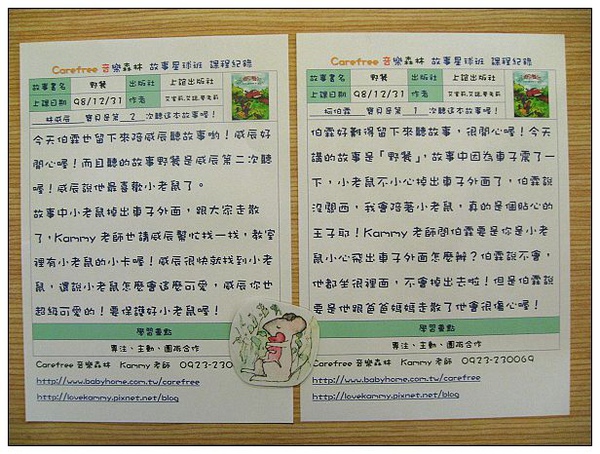 Carefree 音樂森林 故事星球班 課程紀錄
故事書名 野餐 出版社 上誼出版社
上課日期 98/12/31 作者
林威辰 寶貝是第 2 次聽這本故事喔!
今天伯霖也留下來陪威辰聽故事喲!威辰好
開心喔!而且聽的故事野餐是威辰第二次聽
喔!威辰說他最喜歡小老鼠了。
故事中小老鼠掉出車子外面,跟大家走散
了,Kammy 老師也請威辰幫忙找一找,教室
裡有小老鼠的小卡喔!威辰很快就找到小老
鼠,還說小老鼠怎麼會這麼可愛,威辰你也
超級可愛的!要保護好小老鼠喔!
學習重點
專注、主動、團隊合作
Carefree 音樂森林 Kammy 老師 0923-230
http://www.babyhome.com.tw/carefree
http://lovekammy.pixnet.net/blog
Carefree 音樂森林 故事星球班 課程紀錄
故事書名 野餐 出版社 上誼出版社
上課日期 98/12/31 作者
柯伯霖 寶貝是第 1 次聽這本故事喔!
伯霖好難得留下來聽故事,很開心喔!今天
講的故事是「野餐」,故事中因為車子震了一
下,小老鼠不小心掉出車子外面了,伯霖說
沒關西,我會陪著小老鼠,真的是個貼心的
王子耶!Kammy 老師問伯霖要是你是小老
鼠小心飛出車子外面怎麼辦?伯霖說不會,
他都坐很裡面,不會掉出去啦!但是伯霖說
要是他跟爸爸媽媽走散了他會很傷心喔!
學習重點
專注、主動、團隊合作
Carefree 音樂森林 Kammy 老師 0923-230069
http://www.babyhome.com.tw/carefree
http://lovekammy.pixnet.net/blog